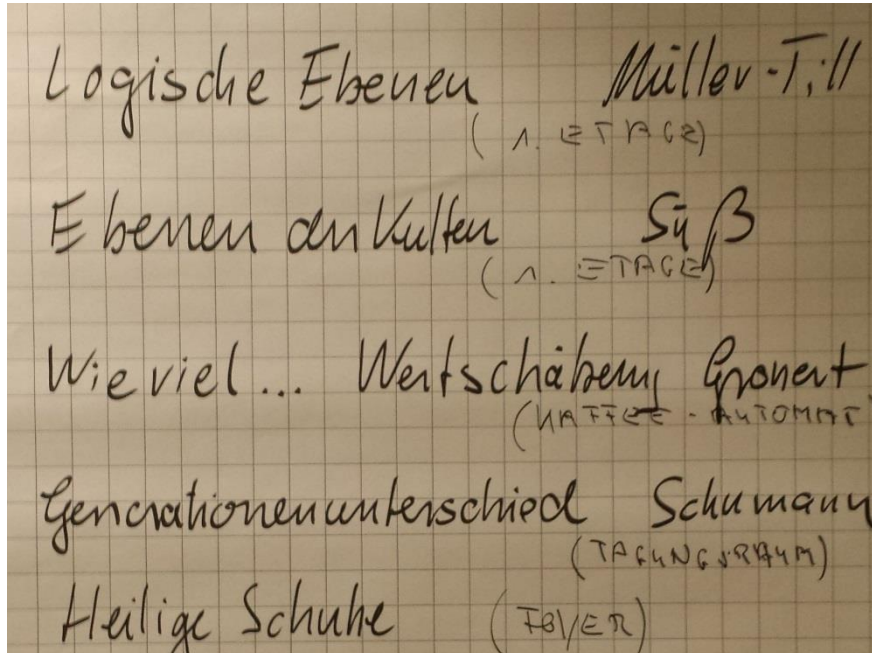 Logische Ebenen Müller-Till
(1. ETAGE)
Ebenen der Kulten Süß
(1. ETAGE)
Wie viel... Wertschätzung Gronert
(KAFFEE-AUTOMAT
Generationenunterschied Schumann
(TAGUNGSRAUM)
Heilige Schuhe (FOYER)